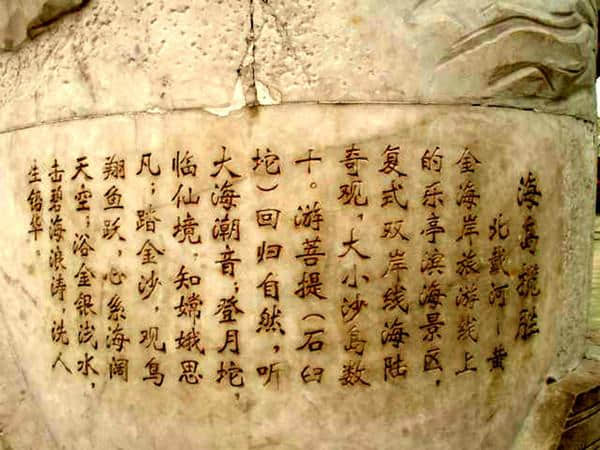 海岛揽胜
北戴河－黄
金海岸旅游线上
的乐亭滨海景区，
复式双岸线海陆
奇观，大小沙岛数
十。游菩提（石臼
坨）回归自然，听
大海潮音；登月坨，
临仙境，知嫦娥思
凡；踏金沙，观鸟
翔鱼跃，心系海阔
天空；浴金银浅水，
击碧海浪涛，洗人
生铅华。